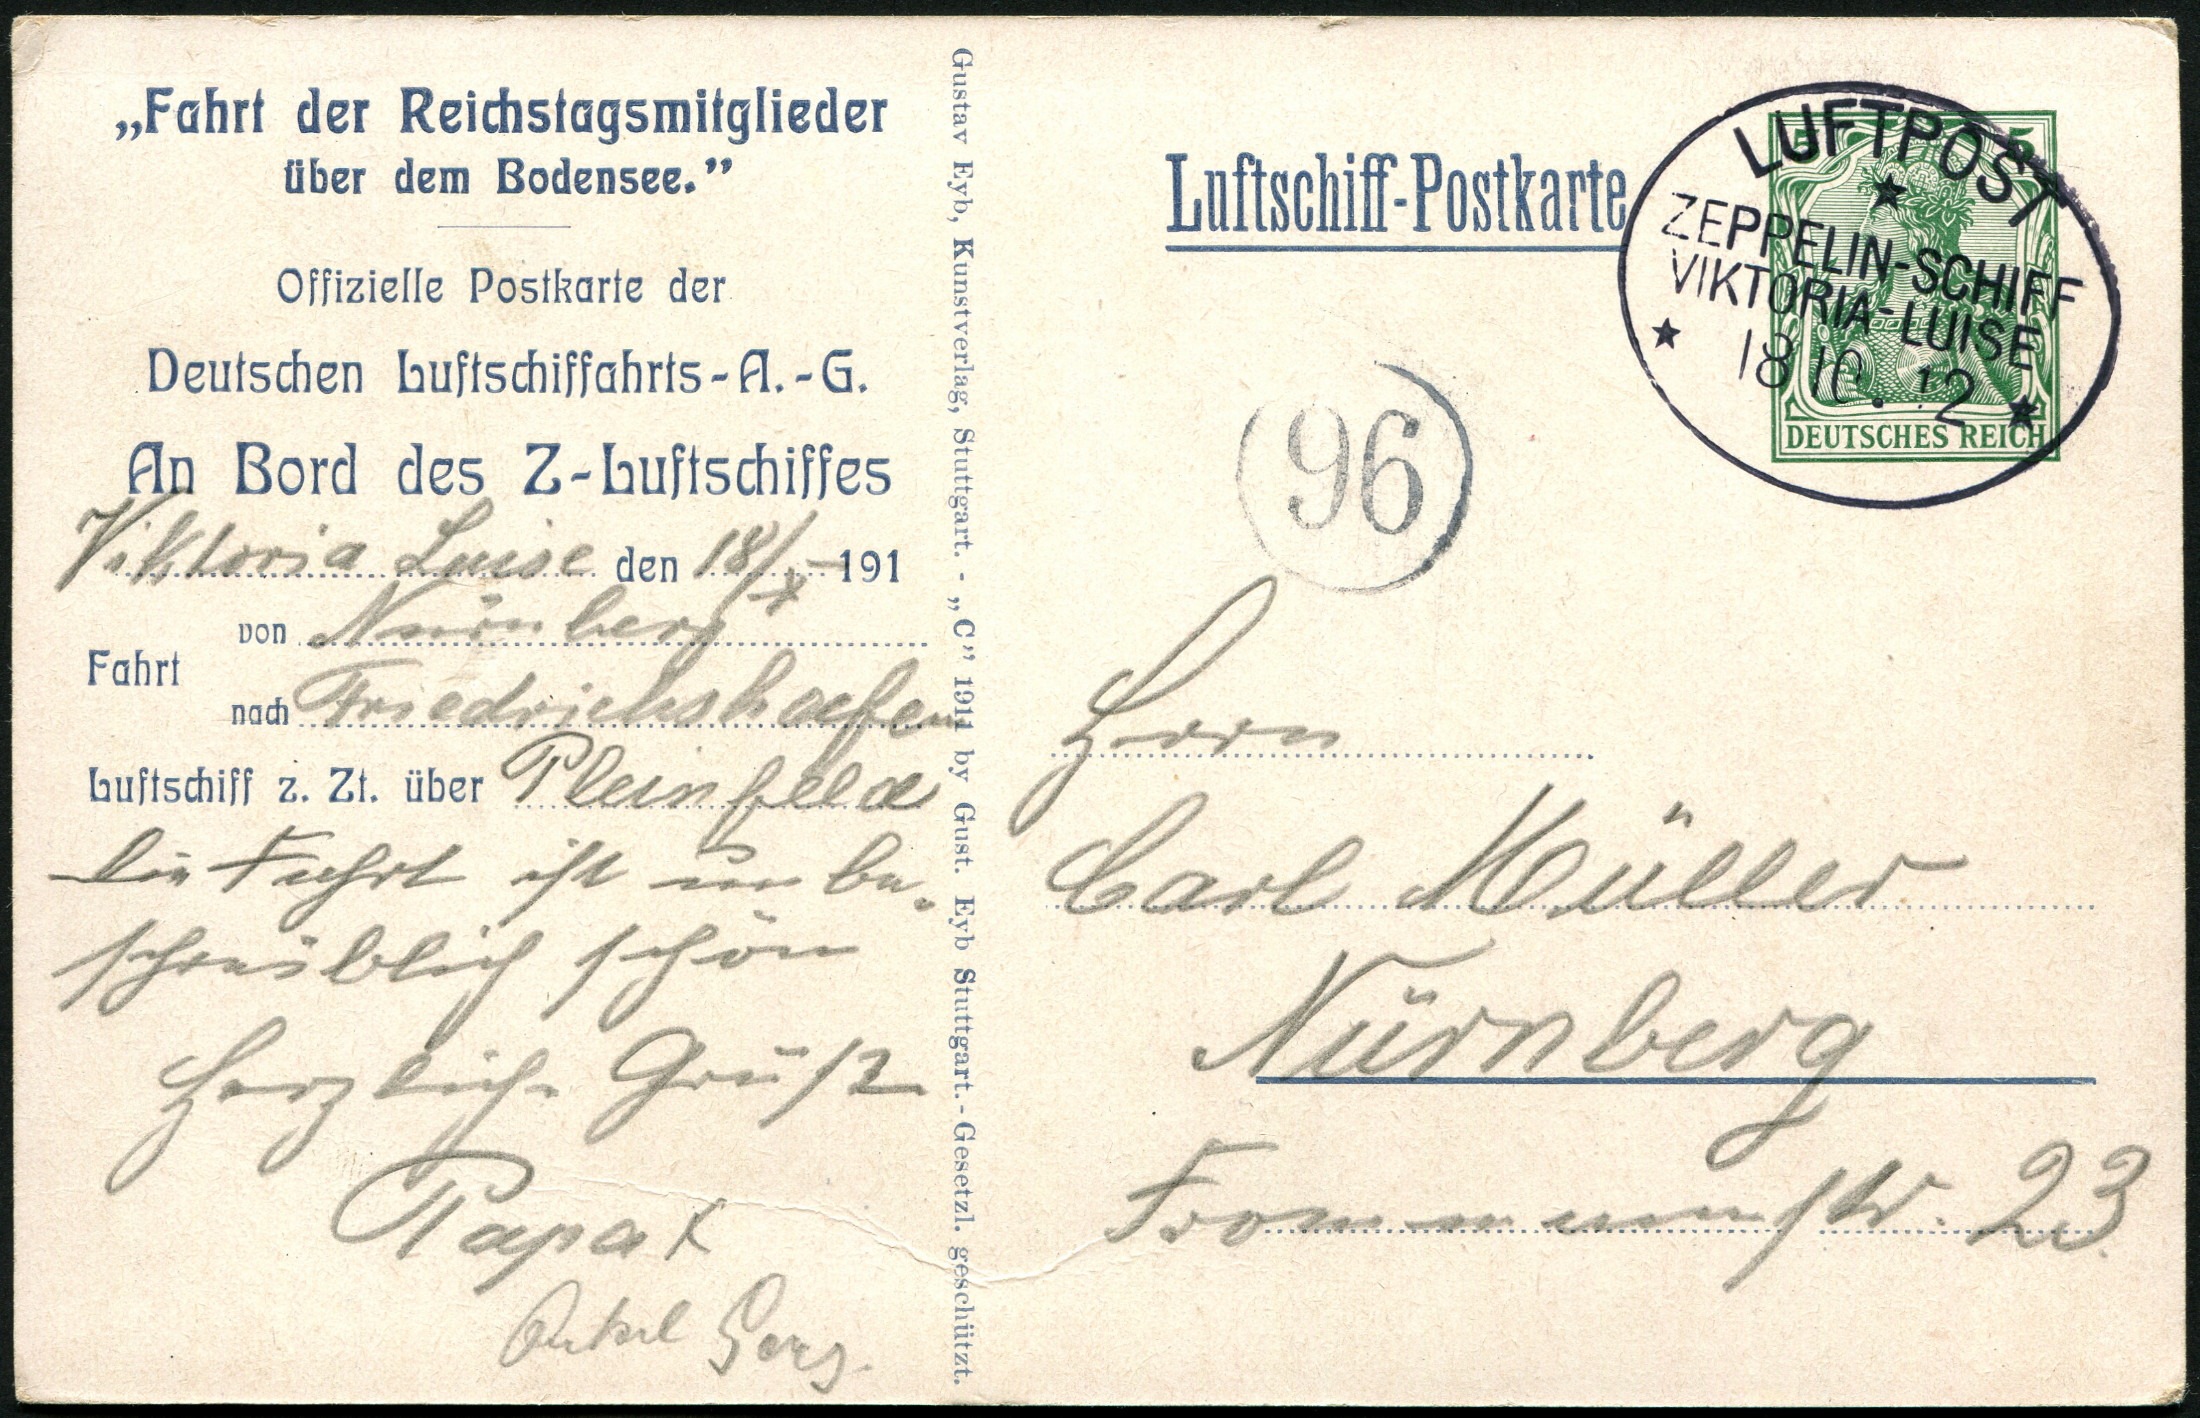 „Fahrt der Reichstagsmitglieder
über dem Bodensee.”
Offizielle Postkarte der
Deutschen Luftschiffahrts-A.-G.
An Bord des Z-Luftschiffes
Viktoria Luise den 18/X 191
von Nürnberg
Fahrt
nach Friedrichshafen
Luftschiff z. Zt. über Pleinfeld
die Fahrt ist unbe-
schreiblich schön
Herzliche Grüße
Papa
Onkel Georg.
Gustav Eyb, Kunstverlag, Stuttgart. - „C” 1911 by Gust. Eyb Stuttgart.-Gesetzl. geschützt.
Luftschiff-Postkarte
5 5
DEUTSCHES REICH
LUFTPOST
ZEPPELIN-SCHIFF
VIKTORIA-LUISE
18 10. 12
96
Herrn
Carl Müller
Nürnberg
Frommannstr. 23